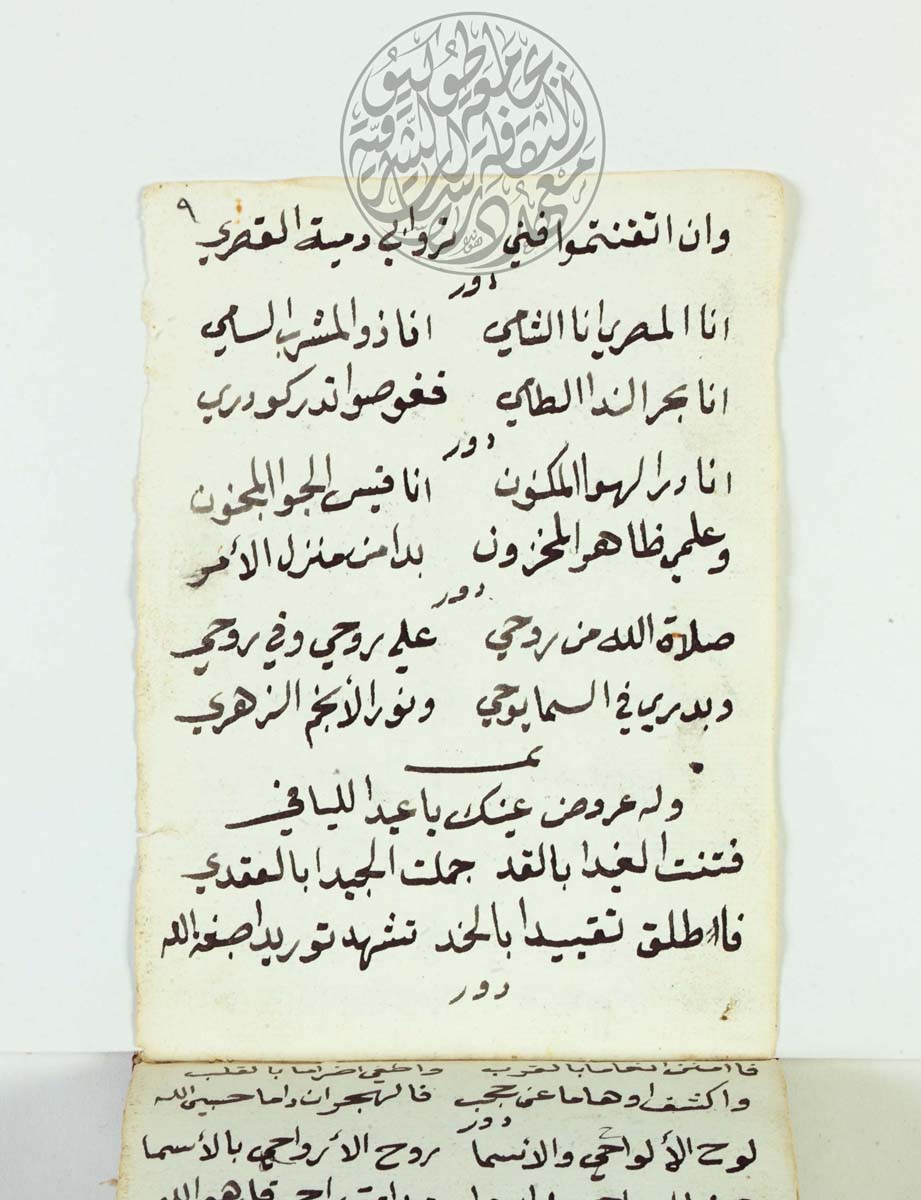 ٩
وان اتقننتموا فني تروا في دمية القصري
دور
انا المصري انا الشامي انا ذو المشرب السامي
انا بحر الندا الطامي فغوصوا تدركو دري
دور
انا در الهوا المكنون انا قيس الجوا المجنون
وعلمي ظاهر المخزون بدا من منزل الأمر
دور
صلاة الله من روحي علي روحي وفي روحي
وبدري في السما يوحي ونور الأنجم الزهري
وله عروض عينك يا عيد الليافي
فتنت الغيدا بالقد جملت الجيدا بالعقدي
فااطلق تقييدا بالخد تشهد توريدا صبغة الله
دور
واكشف اوهاما عن حجب فالهجوان داما حسبي الله
دور
لوح الألواحي والانسما روح الأرواحي بالأسما